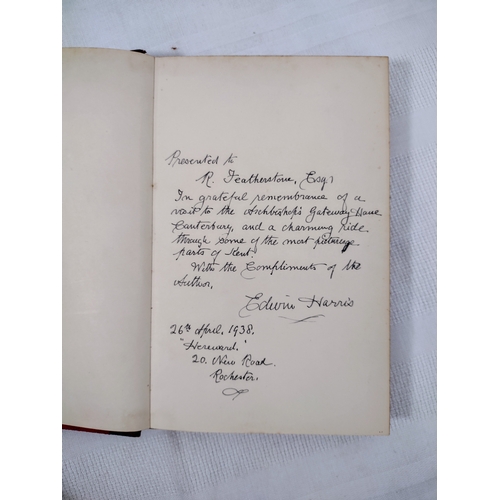 Presented to
R. Featherstone, Esq:
In grateful remembrance of a
visit to the Archbishop's Gateway House
Canterbury, and a charming ride
through some of the most picturesque
parts of Kent.
With the Compliments of the
Author,
Edwin Harris
26th April, 1938.
"Hereward."
20. New Road.
Rochester.